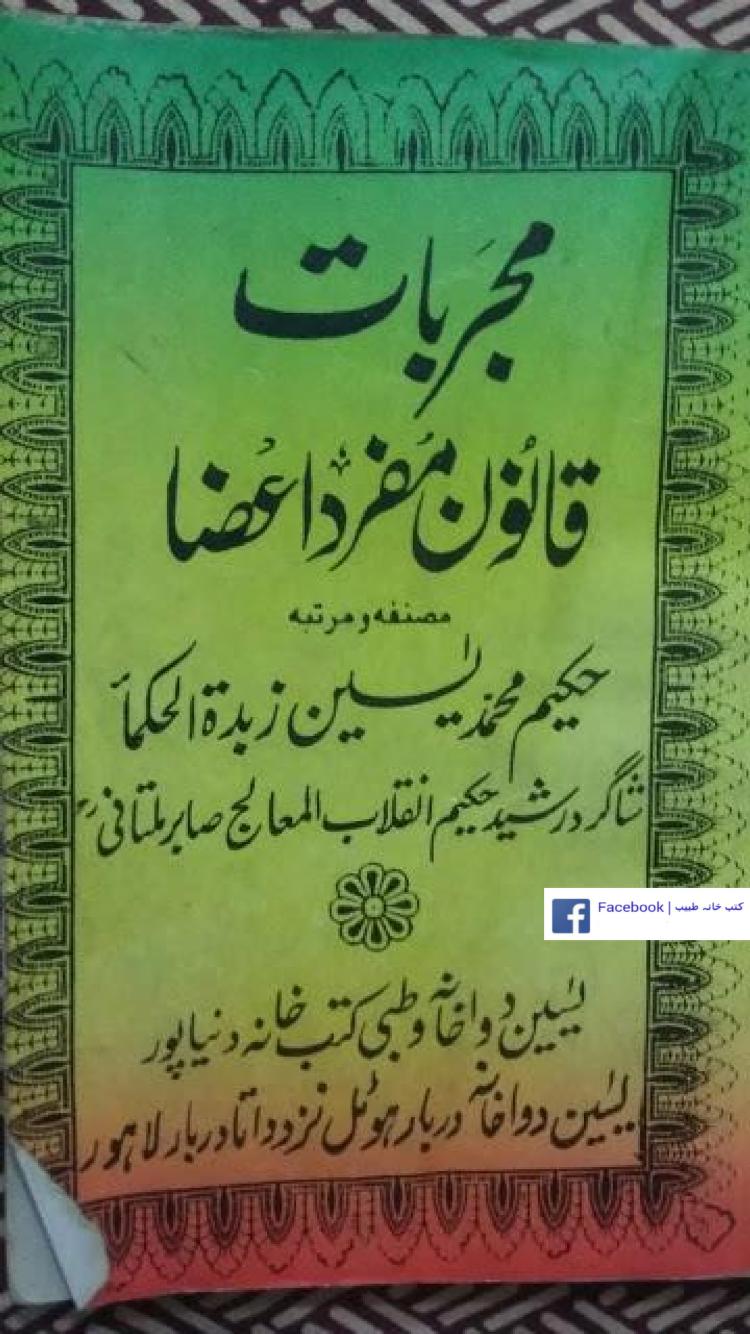 مجرّبات
قانون مفرد اعضا
مصنفه و مرتبه
حکیم محمد یٰسین زبدۃ الحکمأ
شاگرد رشید حکیم انقلاب المعالج صابر ملتانیؒ
Facebook | کتب خانہ طبیب
یٰسین دواخانہ و طبی کتب خانہ دنیاپور
یٰسین دواخانہ دربار ہوٹل نزد داتا دربار لاہور